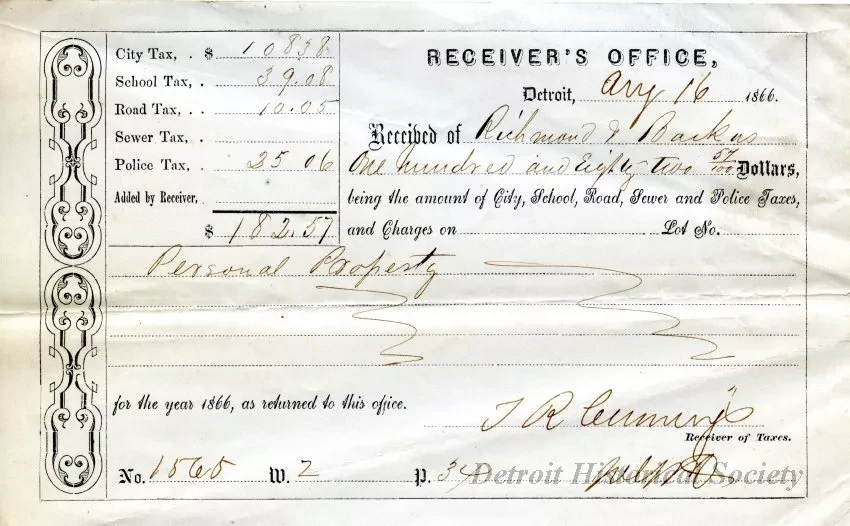 City Tax, . $ 108 38
School Tax, . 39.08
Road Tax, . . 10.05
Sewer Tax, .
Police Tax, . 25 06
Added by Receiver,
$ 182.57
RECEIVER'S OFFICE,
Detroit, Aug 16 1866.
Received of Richmond & Backus
One hundred and Eighty two 57/100 Dollars,
being the amount of City, School, Road, Sewer and Police Taxes,
and Charges on Lot No.
Personal Property
for the year 1866, as returned to this office.
T R Cummings
Receiver of Taxes.
No. 1565 W. 2 P. 34
Detroit Historical Society